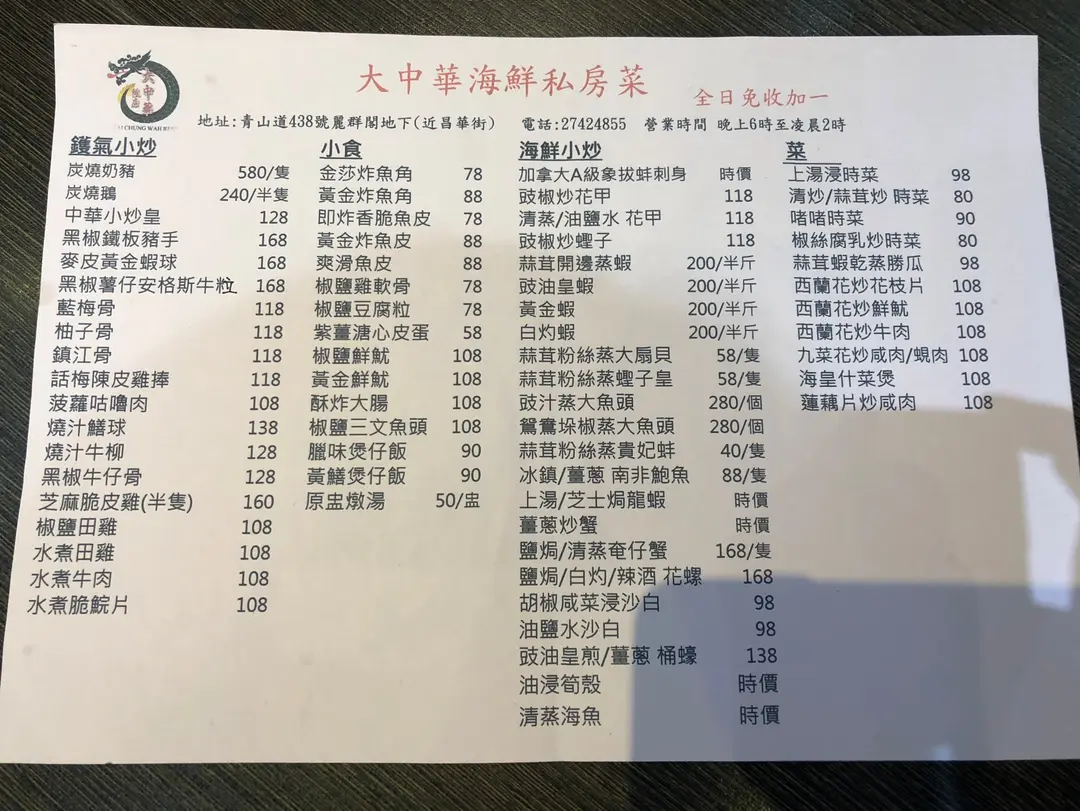 大中華海鮮私房菜 全日免收加一
大中華
CHUNG WAH
地址:青山道438號麗群閣地下(近昌華街) 電話:27424855 營業時間 晚上6時至凌晨2時
鑊氣小炒
炭燒奶豬 580/隻
炭燒鵝 240/半隻
中華小炒皇 128
黑椒鐵板豬手 168
麥皮黃金蝦球 168
黑椒薯仔安格斯牛粒 168
藍梅骨 118
柚子骨 118
鎮江骨 118
話梅陳皮雞捧 118
菠蘿咕嚕肉 108
燒汁鱔球 138
燒汁牛柳 128
黑椒牛仔骨 128
芝麻脆皮雞(半隻) 160
椒鹽田雞 108
水煮田雞 108
水煮牛肉 108
水煮脆鯇片 108
小食
金莎炸魚角 78
黃金炸魚角 88
即炸香脆魚皮 78
黃金炸魚皮 88
爽滑魚皮 88
椒鹽雞軟骨 78
椒鹽豆腐粒 78
紫薑溏心皮蛋 58
椒鹽鮮魷 108
黃金鮮魷 108
酥炸大腸 108
椒鹽三文魚頭 108
臘味煲仔飯 90
黃鱔煲仔飯 90
原盅燉湯 50/盅
海鮮小炒
加拿大A級象拔蚌刺身 時價
豉椒炒花甲 118
清蒸/油鹽水 花甲 118
豉椒炒蟶子 118
蒜茸開邊蒸蝦 200/半斤
豉油皇蝦 200/半斤
黃金蝦 200/半斤
白灼蝦 200/半斤
蒜茸粉絲蒸大扇貝 58/隻
蒜茸粉絲蒸蟶子皇 58/隻
豉汁蒸大魚頭 280/個
鴛鴦垛椒蒸大魚頭 280/個
蒜茸粉絲蒸貴妃蚌 40/隻
冰鎮/薑蔥 南非鮑魚 88/隻
上湯/芝士焗龍蝦 時價
薑蔥炒蟹 時價
鹽焗/清蒸奄仔蟹 168/隻
鹽焗/白灼/辣酒 花螺 168
胡椒咸菜浸沙白 98
油鹽水沙白 98
豉油皇煎/薑蔥 桶蠔 138
油浸筍殼 時價
清蒸海魚 時價
菜
上湯浸時菜 98
清炒/蒜茸炒 時菜 80
啫啫時菜 90
椒絲腐乳炒時菜 80
蒜茸蝦乾蒸勝瓜 98
西蘭花炒花枝片 108
西蘭花炒鮮魷 108
西蘭花炒牛肉 108
九菜花炒咸肉/蜆肉 108
海皇什菜煲 108
蓮藕片炒咸肉 108